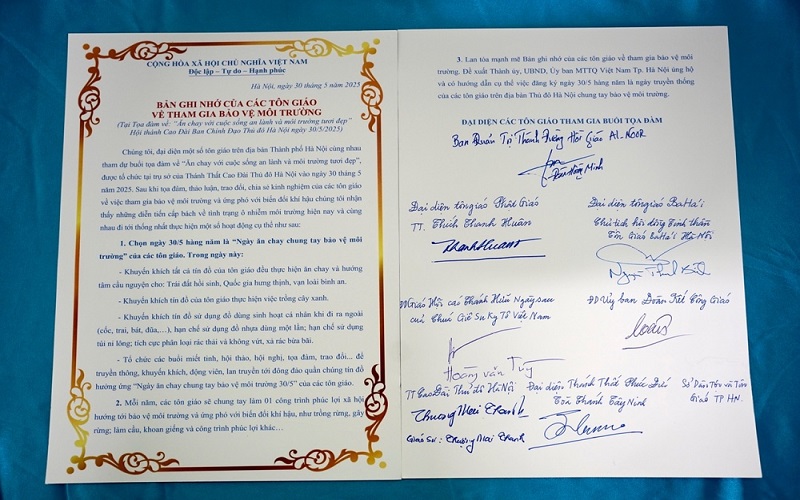 CỘNG HÒA XÃ HỘI CHỦ NGHĨA VIỆT NAM
Độc lập – Tự do – Hạnh phúc
Hà Nội, ngày 30 tháng 5 năm 2025
BẢN GHI NHỚ CỦA CÁC TÔN GIÁO
VỀ THAM GIA BẢO VỆ MÔI TRƯỜNG
(Tại Tọa đàm về: "Ăn chay với cuộc sống an lành và môi trường tươi đẹp"
Hội thánh Cao Đài Ban Chỉnh Đạo Thủ đô Hà Nội ngày 30/5/2025)
Chúng tôi, đại diện một số tôn giáo trên địa bàn Thành phố Hà Nội cùng nhau
tham dự buổi tọa đàm về "Ăn chay với cuộc sống an lành và môi trường tươi đẹp",
được tổ chức tại trụ sở của Thánh Thất Cao Đài Thủ đô Hà Nội vào ngày 30 tháng
5 năm 2025. Sau khi tọa đàm, thảo luận, trao đổi, chia sẻ kinh nghiệm của các tôn giáo
về việc tham gia bảo vệ môi trường và ứng phó với biến đổi khí hậu chúng tôi nhận
thấy những diễn tiến cấp bách về tình trạng ô nhiễm môi trường hiện nay và cùng
nhau đi tới thống nhất thực hiện một số hoạt động cụ thể như sau:
1. Chọn ngày 30/5 hàng năm là "Ngày ăn chay chung tay bảo vệ môi
trường" của các tôn giáo. Trong ngày này:
- Khuyến khích tất cả tín đồ của tôn giáo đều thực hiện ăn chay và hướng
tâm cầu nguyện cho: Trái đất hồi sinh, Quốc gia hưng thịnh, vạn loài bình an.
- Khuyến khích tín đồ của tôn giáo thực hiện việc trồng cây xanh.
- Khuyến khích tín đồ sử dụng đồ dùng sinh hoạt cá nhân khi đi ra ngoài
(cốc, trai, bát, đũa,…), hạn chế sử dụng đồ nhựa dùng một lần; hạn chế sử dụng
túi ni lông; tích cực phân loại rác thải và không vứt, xả rác bừa bãi.
- Tổ chức các buổi mít tinh, hội thảo, hội nghị, tọa đàm, trao đổi... để
truyền thông, khuyến khích, động viên, lan truyền tới đông đảo quần chúng tín đồ
hưởng ứng "Ngày ăn chay chung tay bảo vệ môi trường 30/5" của các tôn giáo.
2. Mỗi năm, các tôn giáo sẽ chung tay làm 01 công trình phúc lợi xã hội
hướng tới bảo vệ môi trường và ứng phó với biến đổi khí hậu, như trồng rừng, gây
rừng; làm cầu, khoan giếng và công trình phúc lợi khác…
3. Lan tỏa mạnh mẽ Bản ghi nhớ của các tôn giáo về tham gia bảo vệ môi
trường. Đề xuất Thành ủy, UBND, Ủy ban MTTQ Việt Nam Tp. Hà Nội ủng hộ
và có hướng dẫn cụ thể việc đăng ký ngày 30/5 hàng năm là ngày truyền thống
của các tôn giáo trên địa bàn Thủ đô Hà Nội chung tay bảo vệ môi trường.
ĐẠI DIỆN CÁC TÔN GIÁO THAM GIA BUỔI TỌA ĐÀM
Ban Quản Trị Thánh Đường Hồi Giáo AL-NOOR
Minh
Đại diện tôn giáo Phật Giáo
TT. Thích Thanh Huân
Thanh Huân
Đại diện tôn giáo BaHa'i
Chủ tịch hội đồng Tinh thần
Tôn Giáo BaHa'i Hà Nội
ĐD Giáo Hội các Thánh Hữu Ngày sau
của Chúa Giê Su Ky Tô Việt Nam
Hoàng Văn Tùng
ĐD Ủy ban Đoàn Kết Công Giáo
TT Cao Đài Thủ đô Hà Nội
Thượng Mai Thanh
Giáo Sư: Thượng Mai Thanh
Đại diện Thánh Thất
Tòa Thánh Tây Ninh
Sở Dân Tộc và Tôn
Giáo TP HN.